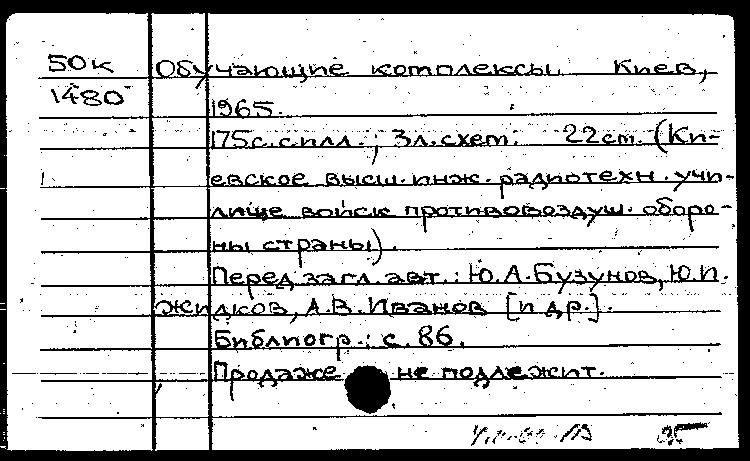 50к Обучающие комплексы. Киев,
1480 1965.
175с. с илл.; 3л. схем. 22см. (Ки-
евское высш. инж. радиотехн. учи-
лище войск противовоздуш. оборо-
ны страны).
Перед загл. авт.: Ю.А. Бузунов, Ю.П.
Жидков, А.В. Иванов [и др.].
Библиогр.: с. 86.
Продаже не подлежит.